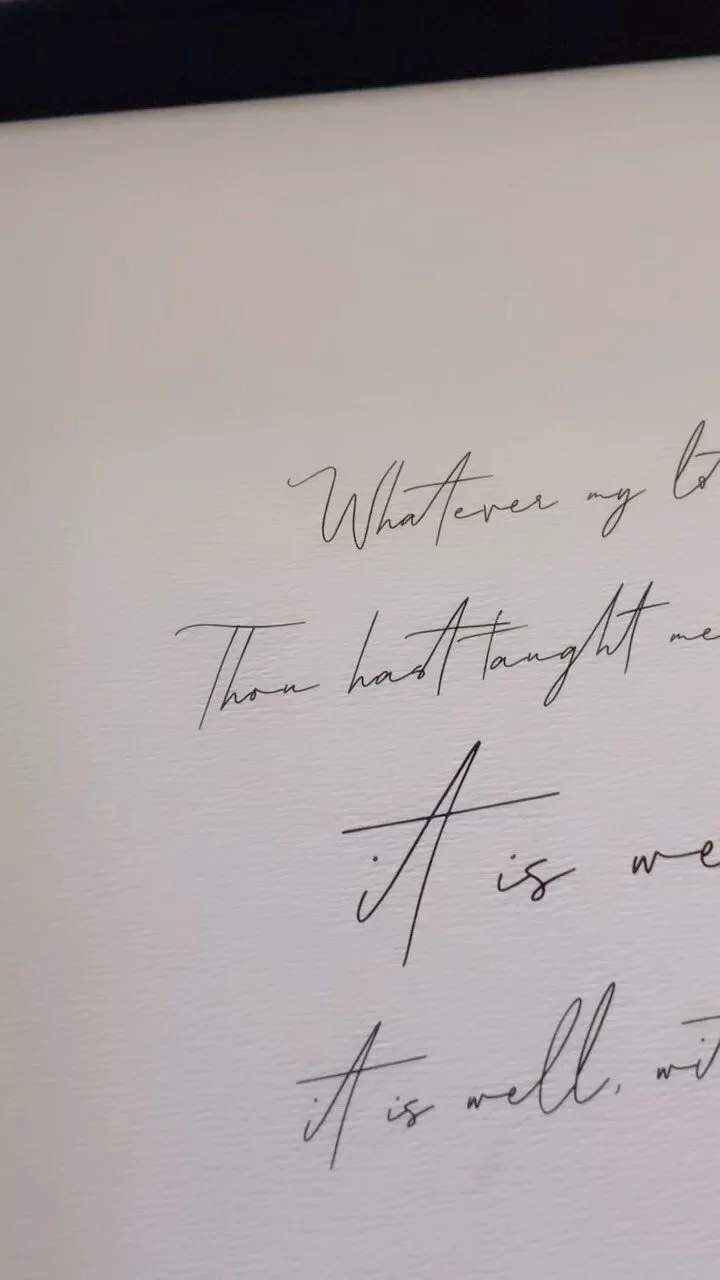 Whatever my lot
Thou hast taught me
it is we
it is well, wit